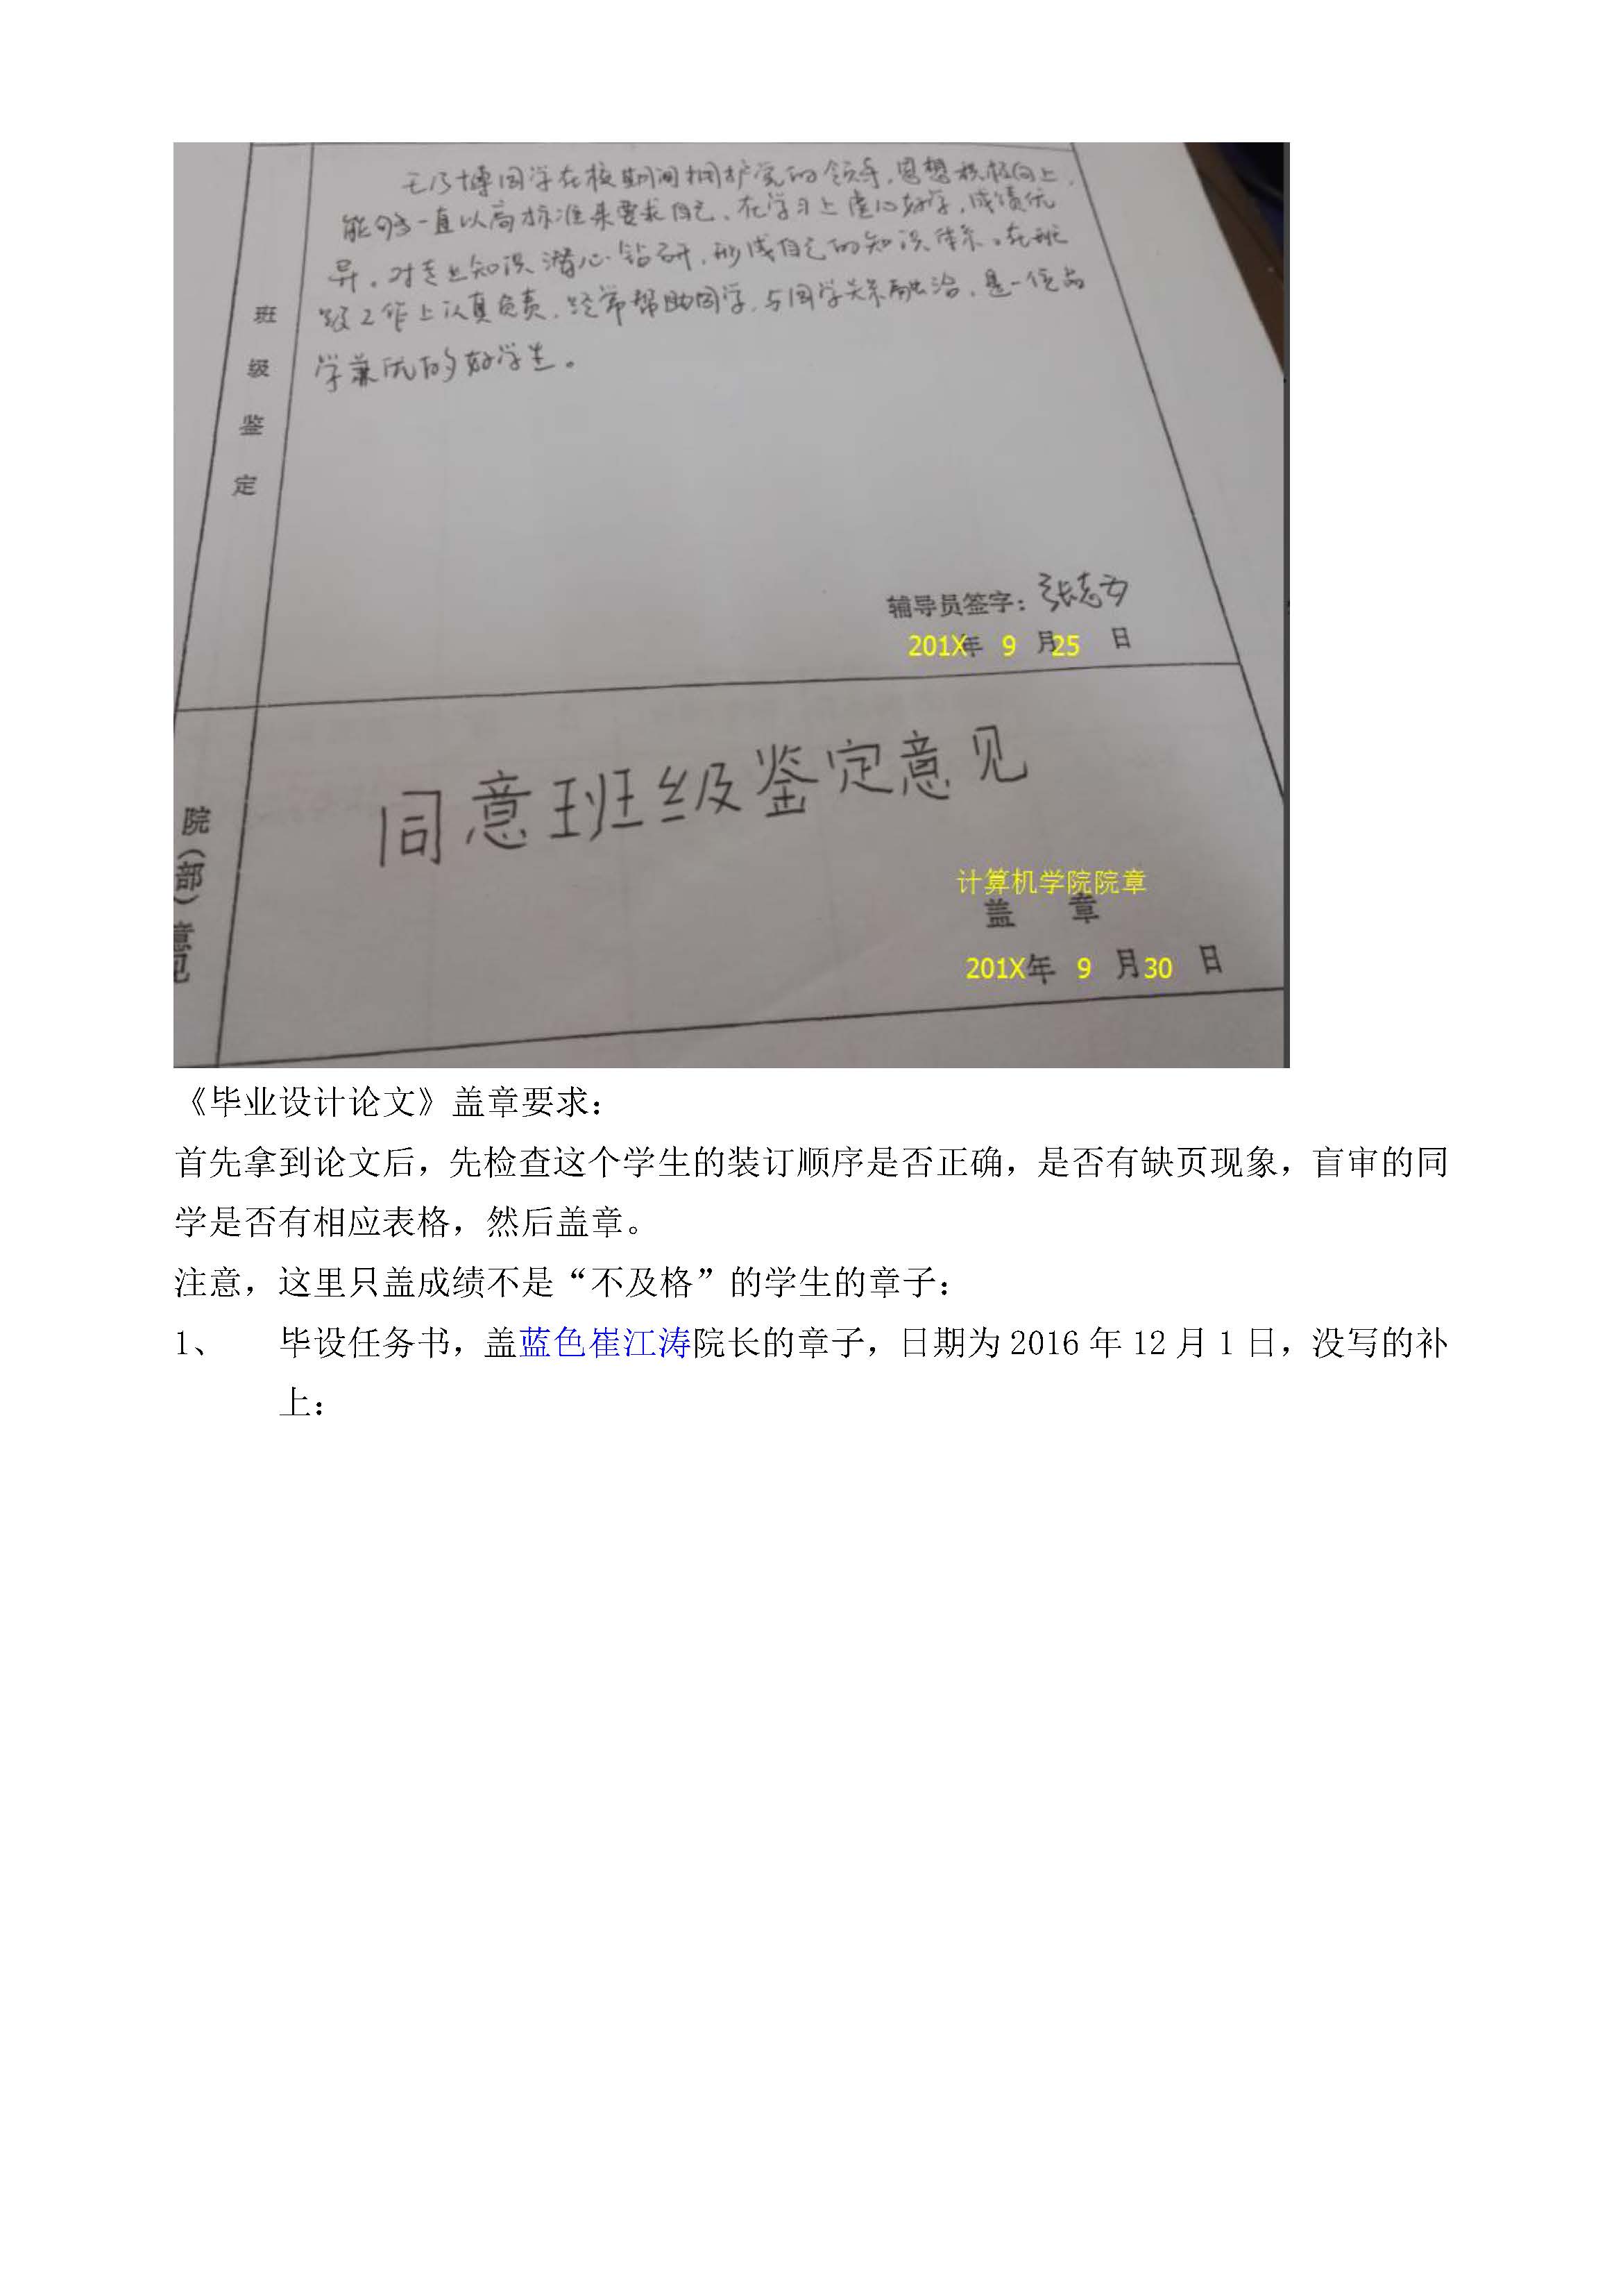 王乃博同学在校期间拥护党的领导，思想积极向上，
能够一直以高标准来要求自己。在学习上虚心好学，成绩优
异。对专业知识潜心钻研，形成自己的知识体系。在班
级工作上认真负责，经常帮助同学，与同学关系融洽，是一位品
学兼优的好学生。
班级鉴定
辅导员签字：
201X年 9 月25 日
同意班级鉴定意见
院（部）意见
计算机学院院章
盖 章
201X年 9 月30 日
《毕业设计论文》盖章要求：
首先拿到论文后，先检查这个学生的装订顺序是否正确，是否有缺页现象，盲审的同
学是否有相应表格，然后盖章。
注意，这里只盖成绩不是“不及格”的学生的章子：
1、 毕设任务书，盖蓝色崔江涛院长的章子，日期为 2016 年 12 月 1 日，没写的补
上：